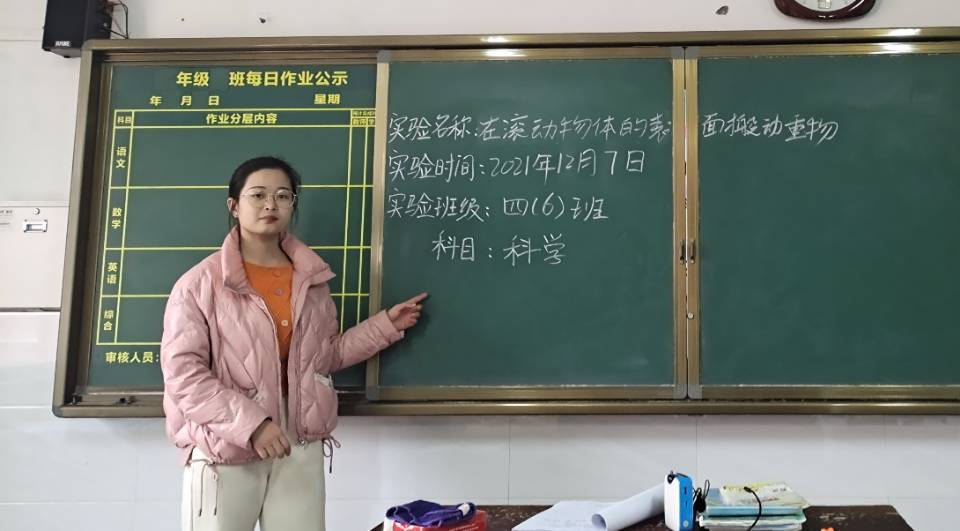 年级 班每日作业公示
年 月 日 星期
科目 作业分层内容
语文
数学
英语
综合
审核人员:
实验名称:在滚动物体的表面搬动重物
实验时间:2021年12月7日
实验班级:四(6)班
科目:科学